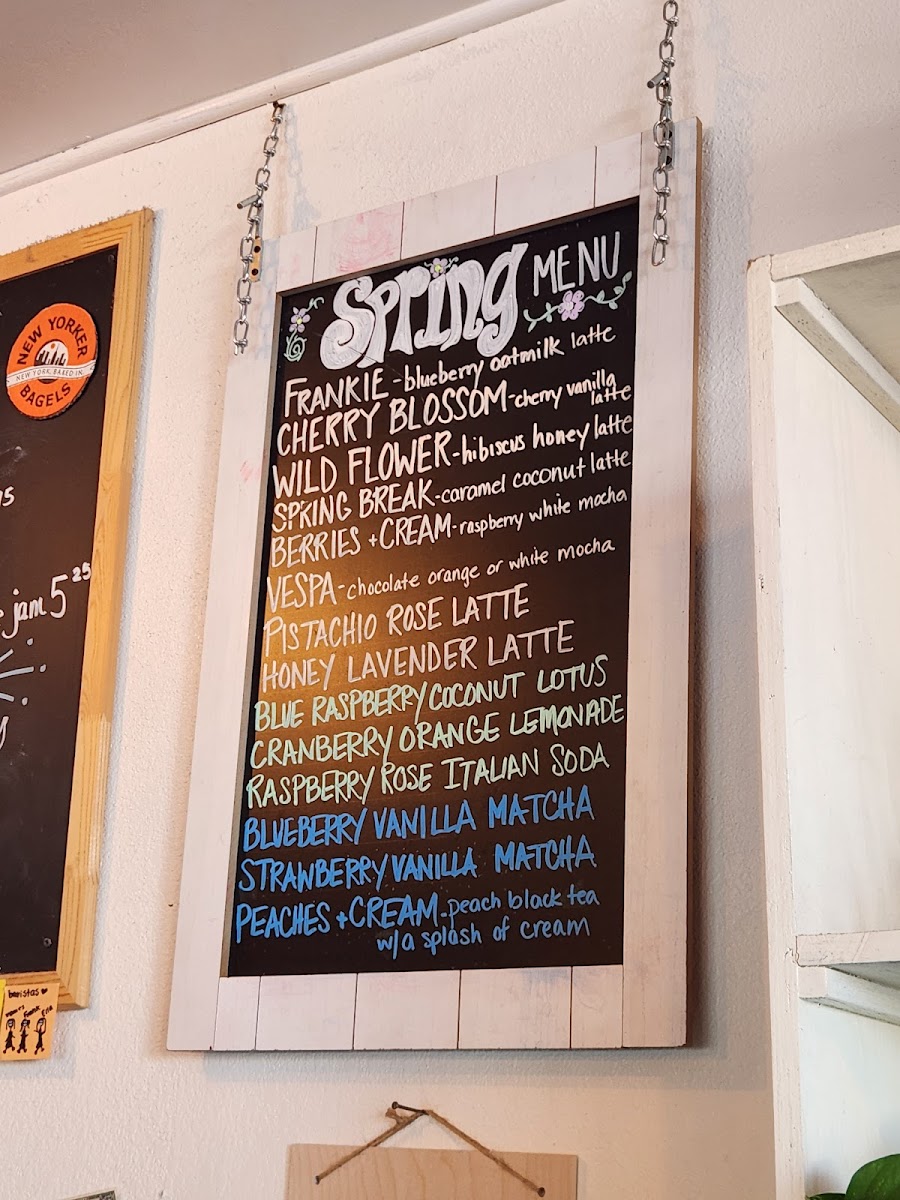 NEW YORKER
NEW YORK, BAKED IN
BAGELS
jam 5 25
baristas
Frank
SPRING MENU
FRANKIE - blueberry oatmilk latte
CHERRY BLOSSOM - cherry vanilla
latte
WILD FLOWER - hibiscus honey latte
SPRING BREAK - caramel coconut latte
BERRIES + CREAM - raspberry white mocha
VESPA - chocolate orange or white mocha
PISTACHIO ROSE LATTE
HONEY LAVENDER LATTE
BLUE RASPBERRY COCONUT LOTUS
CRANBERRY ORANGE LEMONADE
RASPBERRY ROSE ITALIAN SODA
BLUEBERRY VANILLA MATCHA
STRAWBERRY VANILLA MATCHA
PEACHES + CREAM - peach black tea
w/a splash of cream